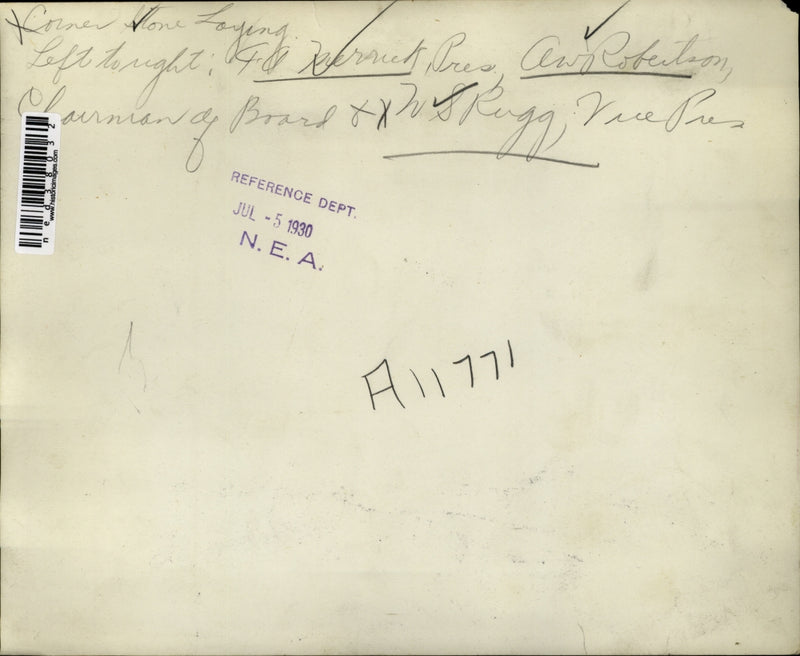 Corner Stone Laying.
Left to right: F A Merrick, Pres, AW Robertson,
Chairman of Board & W S Rugg, Vice Pres
REFERENCE DEPT.
JUL - 5 1930
N. E. A.
A11771
ned38032
www.historicimages.com